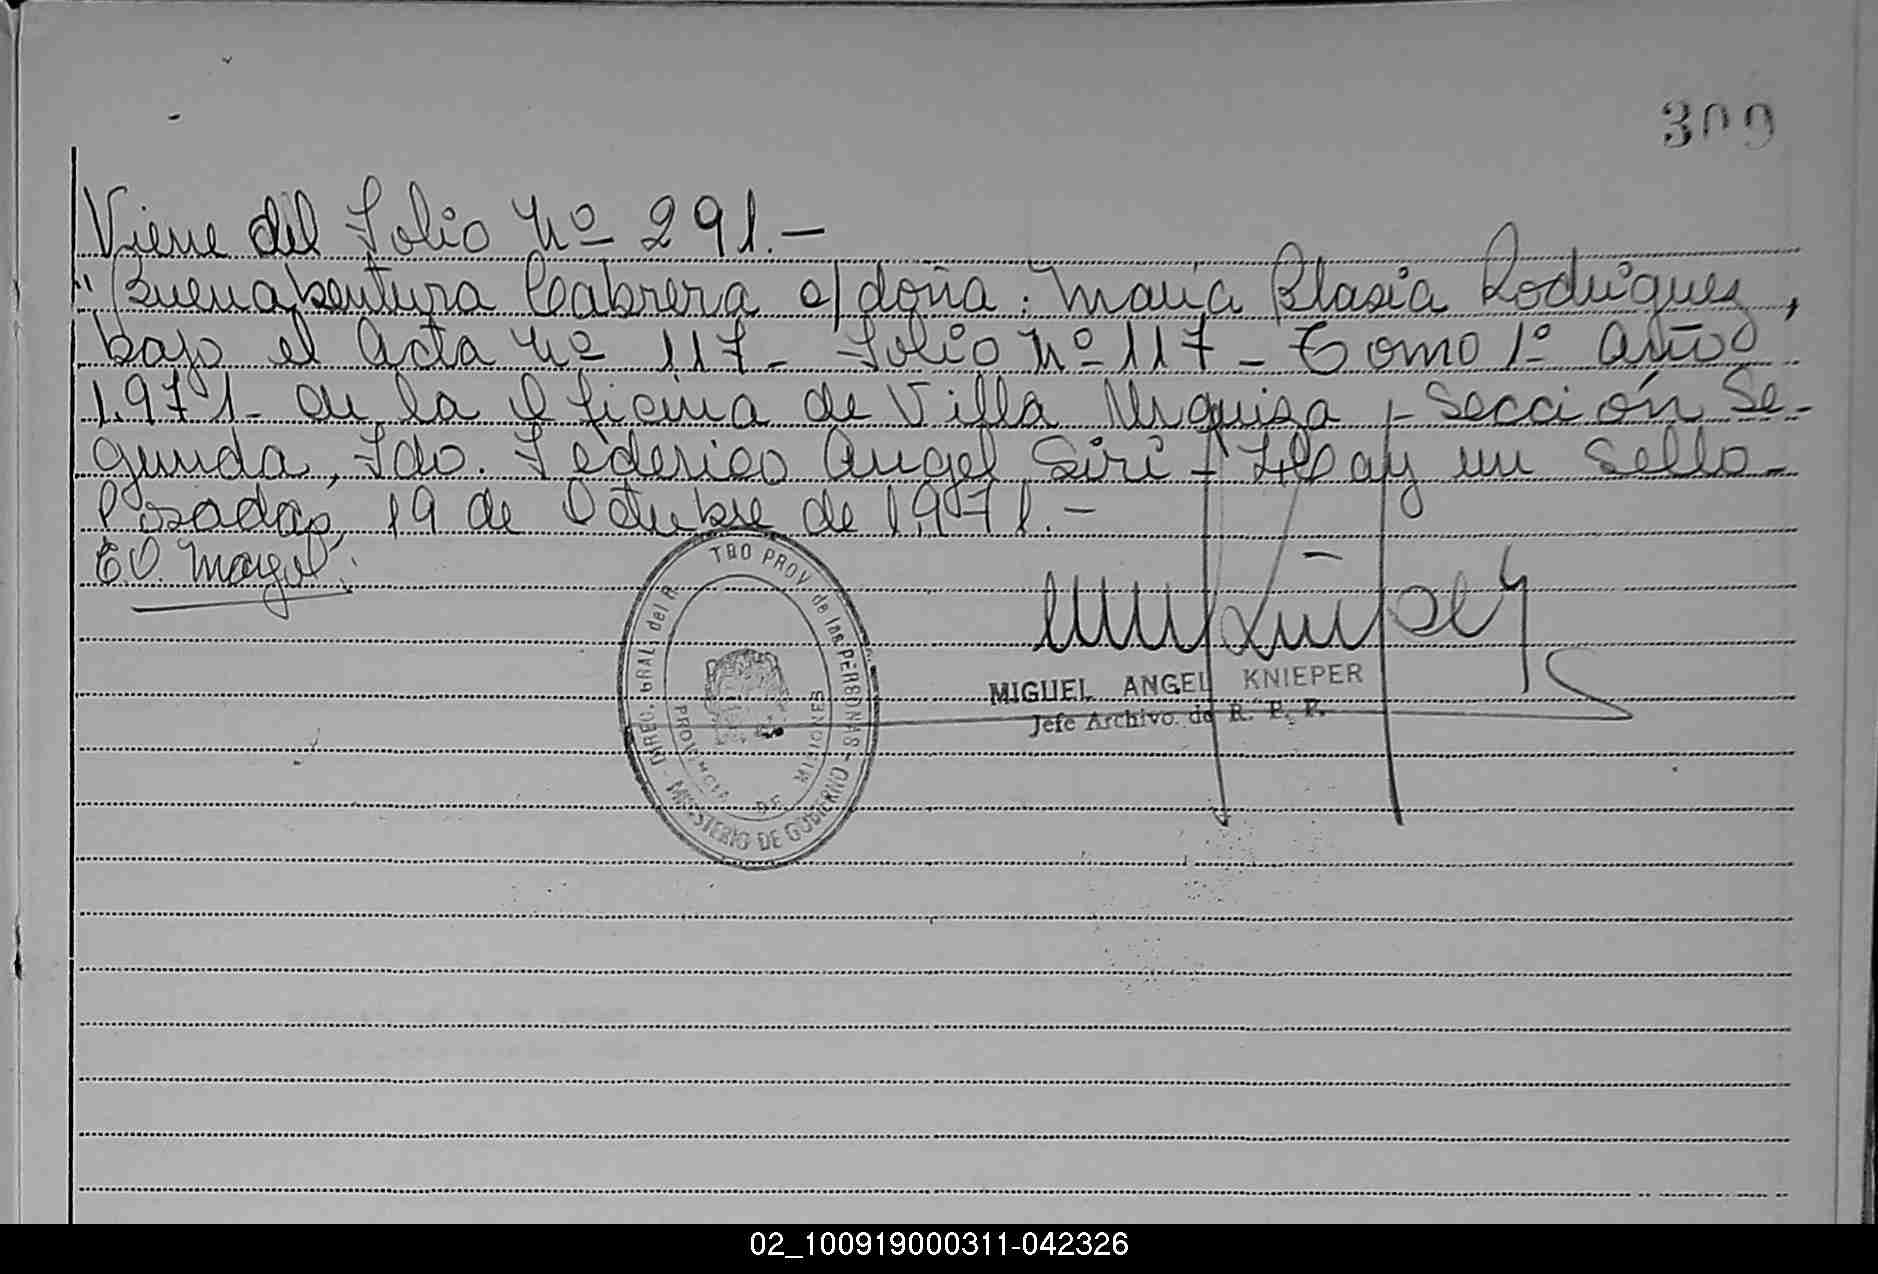 309
Viene del Folio Nº 291.-
"Buenabentura Cabrera c/doña: María Blasia Rodriguez,
bajo el Acta Nº 117- Folio Nº 117- Tomo 1º año
1.971- de la Oficina de Villa Urquiza - Sección Se-
gunda, Fdo. Federico Angel Siri - Hay un Sello-
Posadas, 19 de Octubre de 1.971.-
MIGUEL ANGEL KNIEPER
Jefe Archivo. de R. P. P.
DIREC. GRAL del R TRO PROV de las PERSONAS - MINISTERIO DE GOBIERNO
PROVINCIA DE MISIONES
02_100919000311-042326